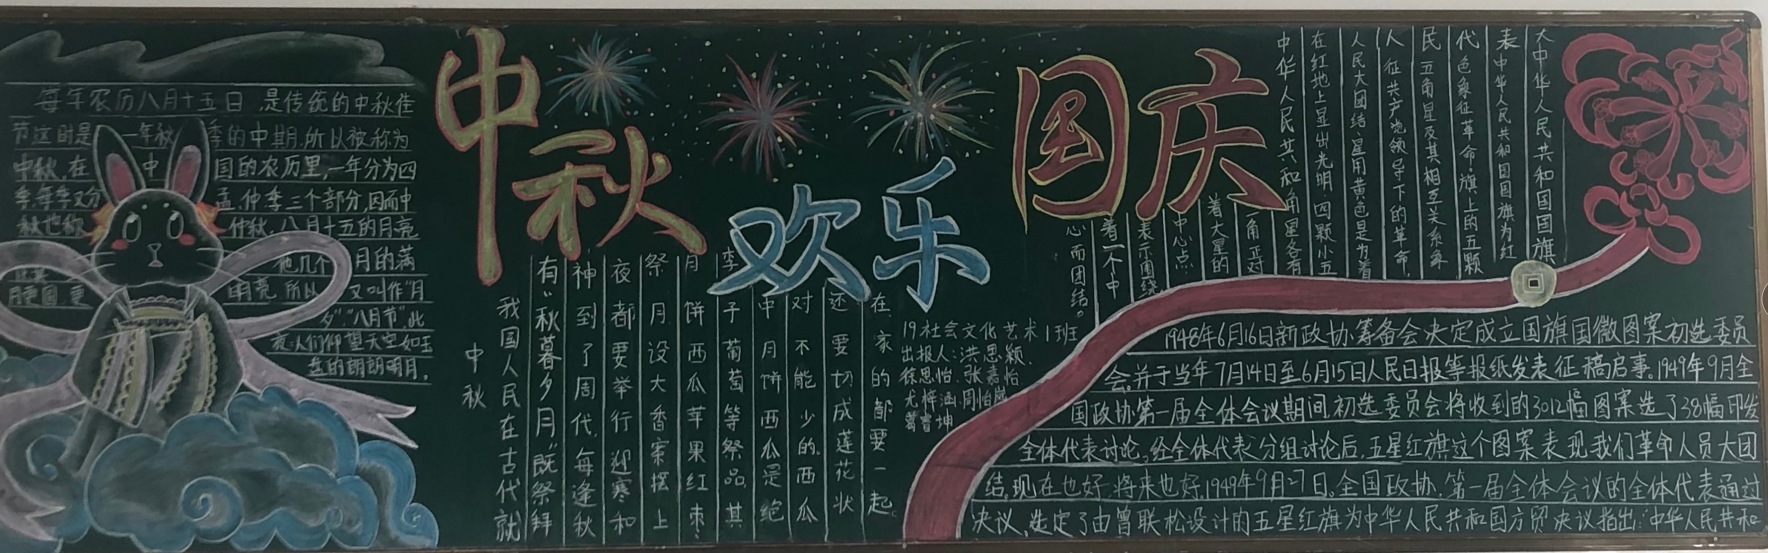 每年农历八月十五日,是传统的中秋佳
节这时是一年秋季的中期,所以被称为
中秋,在中国的农历里,一年分为四
季,每季又分孟,仲,季三个部分,因而中
秋也称仲秋,八月十五的月亮
他几个月的满
月更圆,更明亮,所以又叫作"月
夕""八月节",此
夜,人们仰望天空如玉
盘的朗朗明月,
中秋
欢乐
国庆
中秋
我国人民在古代就
有"秋暮夕月"既祭拜
神到了周代,每逢秋
夜都要举行迎寒和
祭月设大香案摆上
月饼西瓜苹果红枣
李子葡萄等祭品,其
中月饼西瓜是绝
对不能少的,西瓜
还要切成莲花状
在家的都要一起
19社会文化艺术1班
出报人:洪思颖
徐思怡,张嘉怡
大中华人民共和国国旗
表中华人民共和国国旗为红
代色象征革命,旗上的五颗
民五角星及其相互关系象
人征共产党领导下的革命
人民大团结,星用黄色是为着
在红地上显出光明四颗小五
中华人民共和角星各有
一角正对
着大星的
中心点
表示围绕
着一个中
心而团结。
1948年6月16日新政协筹备会决定成立国旗国微图案初选委员
会,并于当年7月14日至6月15日人民日报等报纸发表征稿启事。1949年9月全
国政协第一届全体会议期间初选委员会将收到的3012幅图案选了38幅印发
全体代表讨论。经全体代表分组讨论后,五星红旗这个图案表现我们革命人员大团
结。现在也好,将来也好,1949年9月27日。全国政协,第一届全体会议的全体代表通过
决议,选定了由曾联松设计的五星红旗为中华人民共和国方贸,决议指出:"中华人民共和